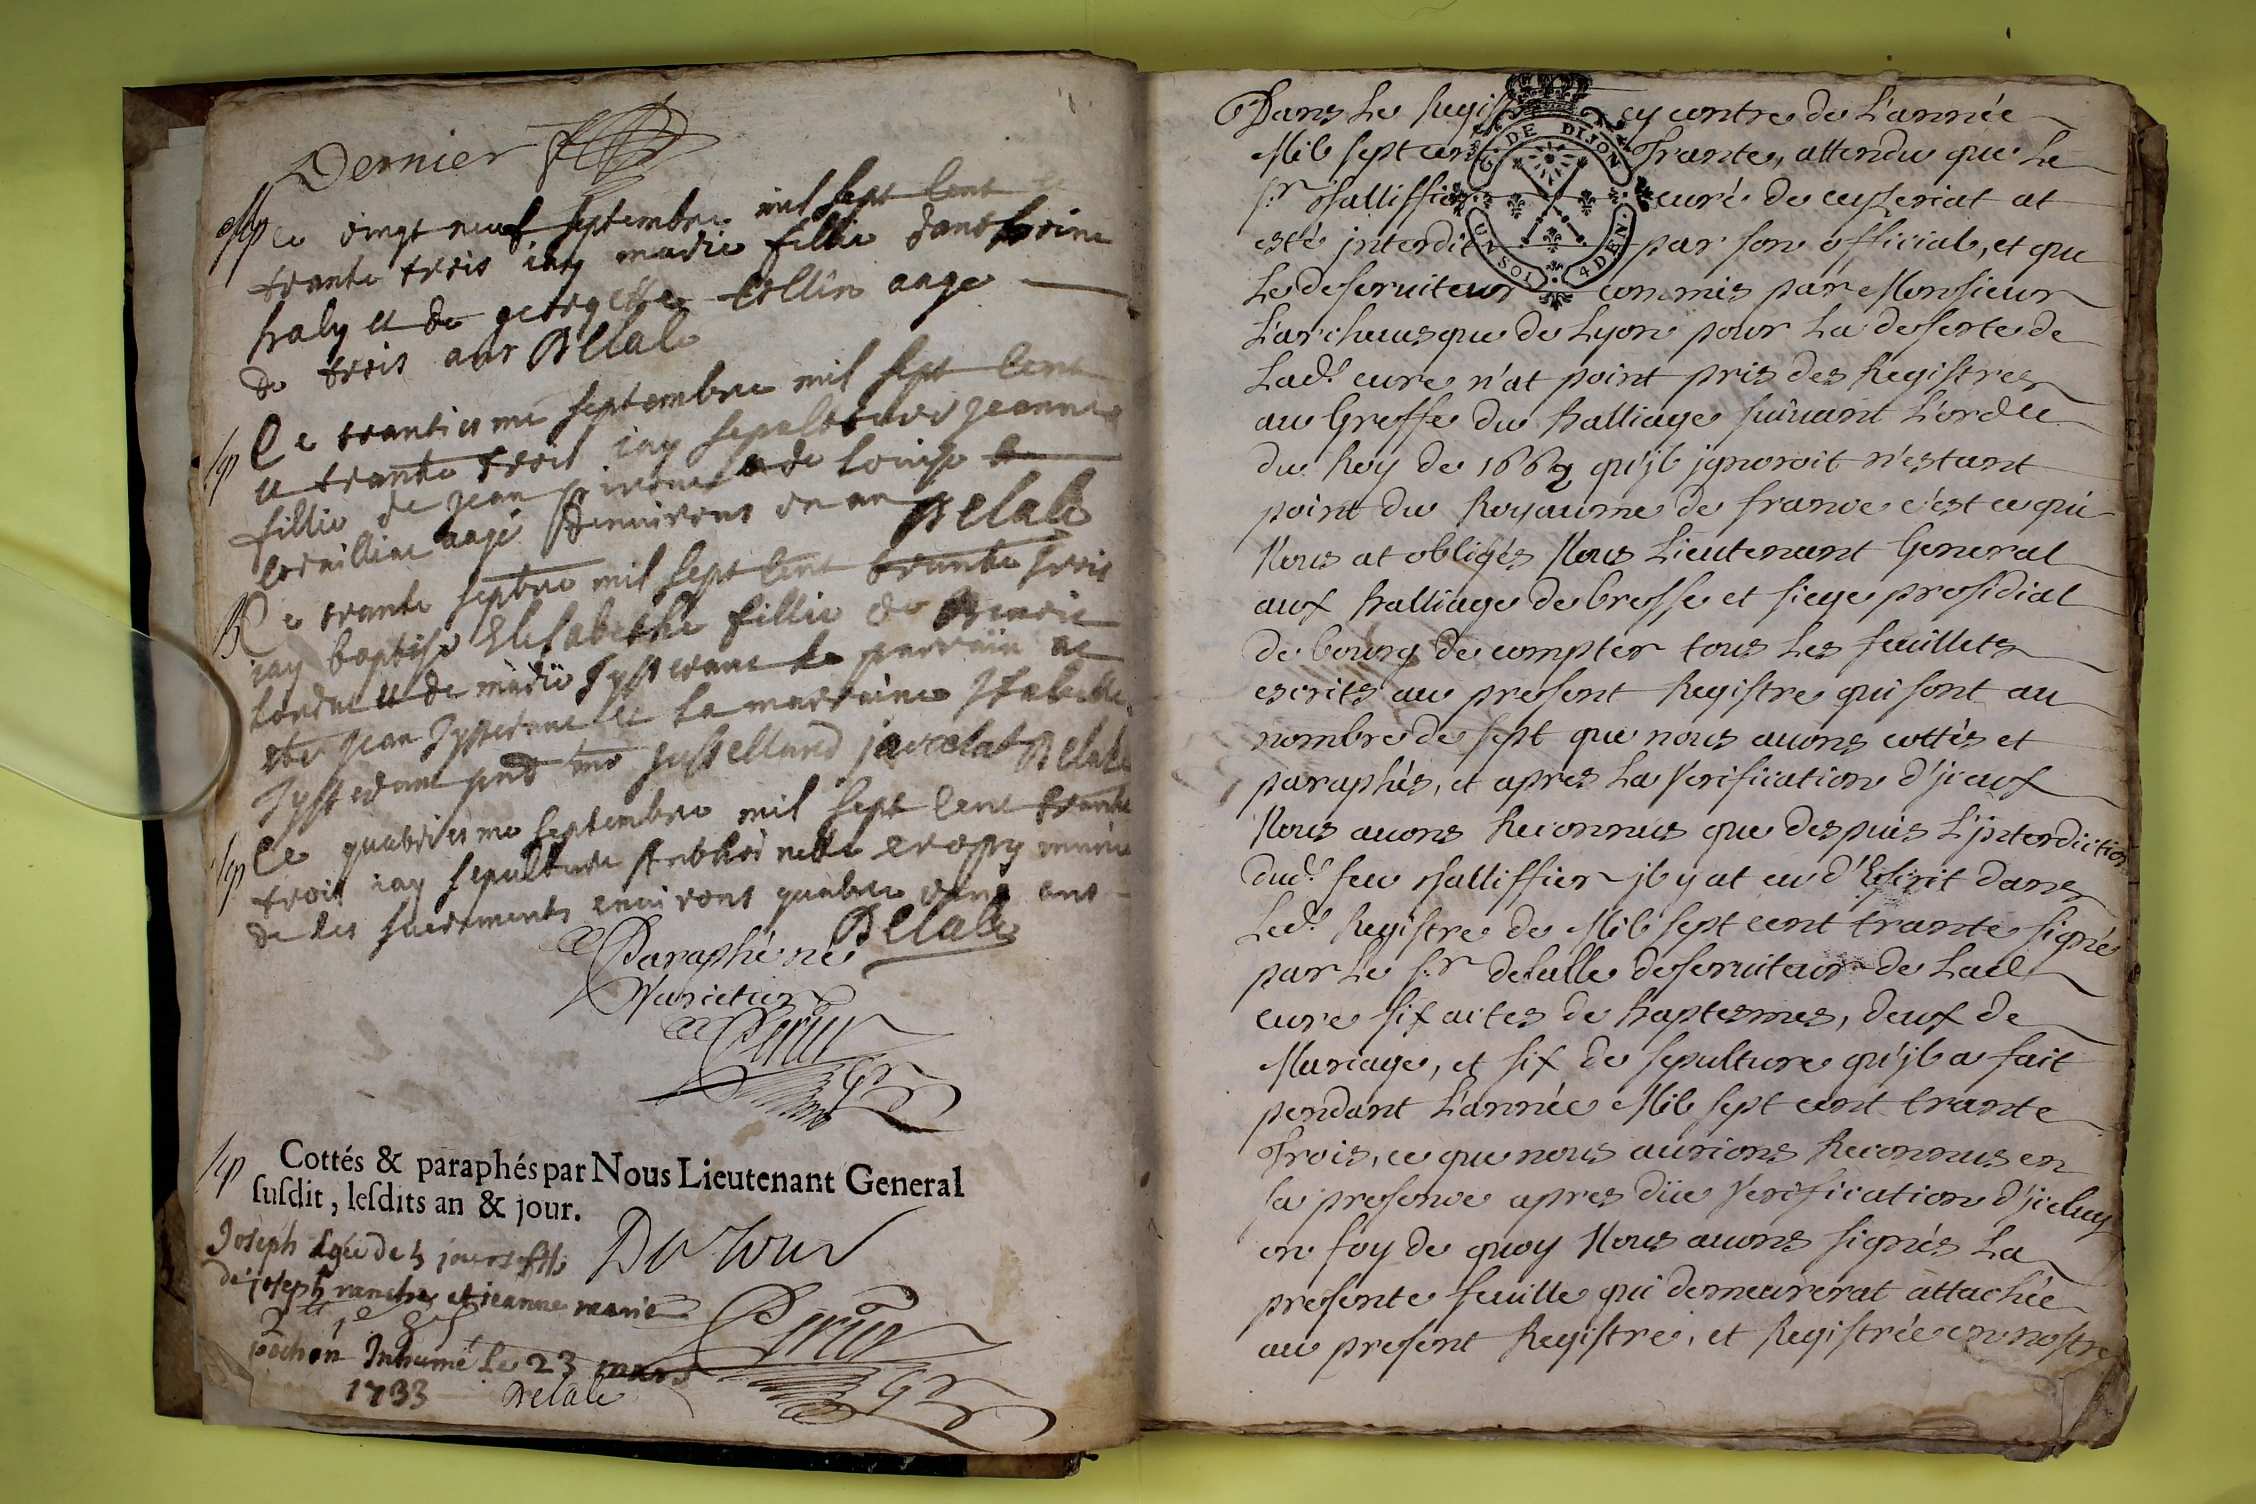 Dernier
Sep Le vingt neuf septembre mil sept cent et
trante trois iay marie fillie danthoine
haly et de georgette collin aage
de trois ans Delale
Sep Le trantiesme septembre mil sept cent
et trante trois iay sepulturé jeanne
fillie de jean et de louise
aagé denvirons un an Delale
B Le trante septbre mil sept cent trante trois
iay baptisé Elisabethe fillie de
et de marie le parrain at
este jean et la marraine
Delale
Sep Le quatriesme septembre mil sept cent trante
trois iay sepulturé Anthoinette munie
de les sacrements environs quatre vingt ans
Delale
Paraphé ne
Varietur
Perier
Sep Cottés & paraphés par Nous Lieutenant General
susdit, lesdits an & jour.
Joseph agé de 5 jours fils
de joseph et jeanne marie
pochon Inhumé le 23 mars
1733 Delale
Perier
Dans Le Registre cy contre de L'année
Mil sept cent Trante, attendu que Le
Sr. curé de cuyseriat at
esté jnterdit par son official, et que
Le deseruiteur commis par Monsieur
L'archeuesque de Lyon pour La deserte de
Lade. cure n'at point pris des Registres
au Greffe du Balliage suiuant L'ordce
du Roy de 1667 qu'jl jgnoroit n'estant
point du Royaume de france c'est ce qui
Nous at obligés Nous Lieutenant General
aux Balliage de bresse et siege presidial
de bourg de compter tous Les feuillets
escrits au present Registre qui sont au
nombre de sept que nous auons cottés et
paraphés, et apres La Verification d'jceux
Nous auons Reconnus que despuis L'jnterdiction
dud. feu jl y at eu d'Escrit dans
Led. Registre de Mil sept cent trante signé
par Le Sr. delalle deseruiteur de Lad.
cure six actes de Baptesmes, deux de
Mariage, et six de sepulture qu'jl a fait
pendant L'année Mil sept cent trante
Trois, ce que nous aurions Reconnus en
sa presence apres düe Verification d'jceluy
en foy de quoy Nous auons signés La
presente feuille qui demeurerat attachée
au present Registre, et Registrée en nostre
G. DE DIJON
UN SOL 4 DEN.